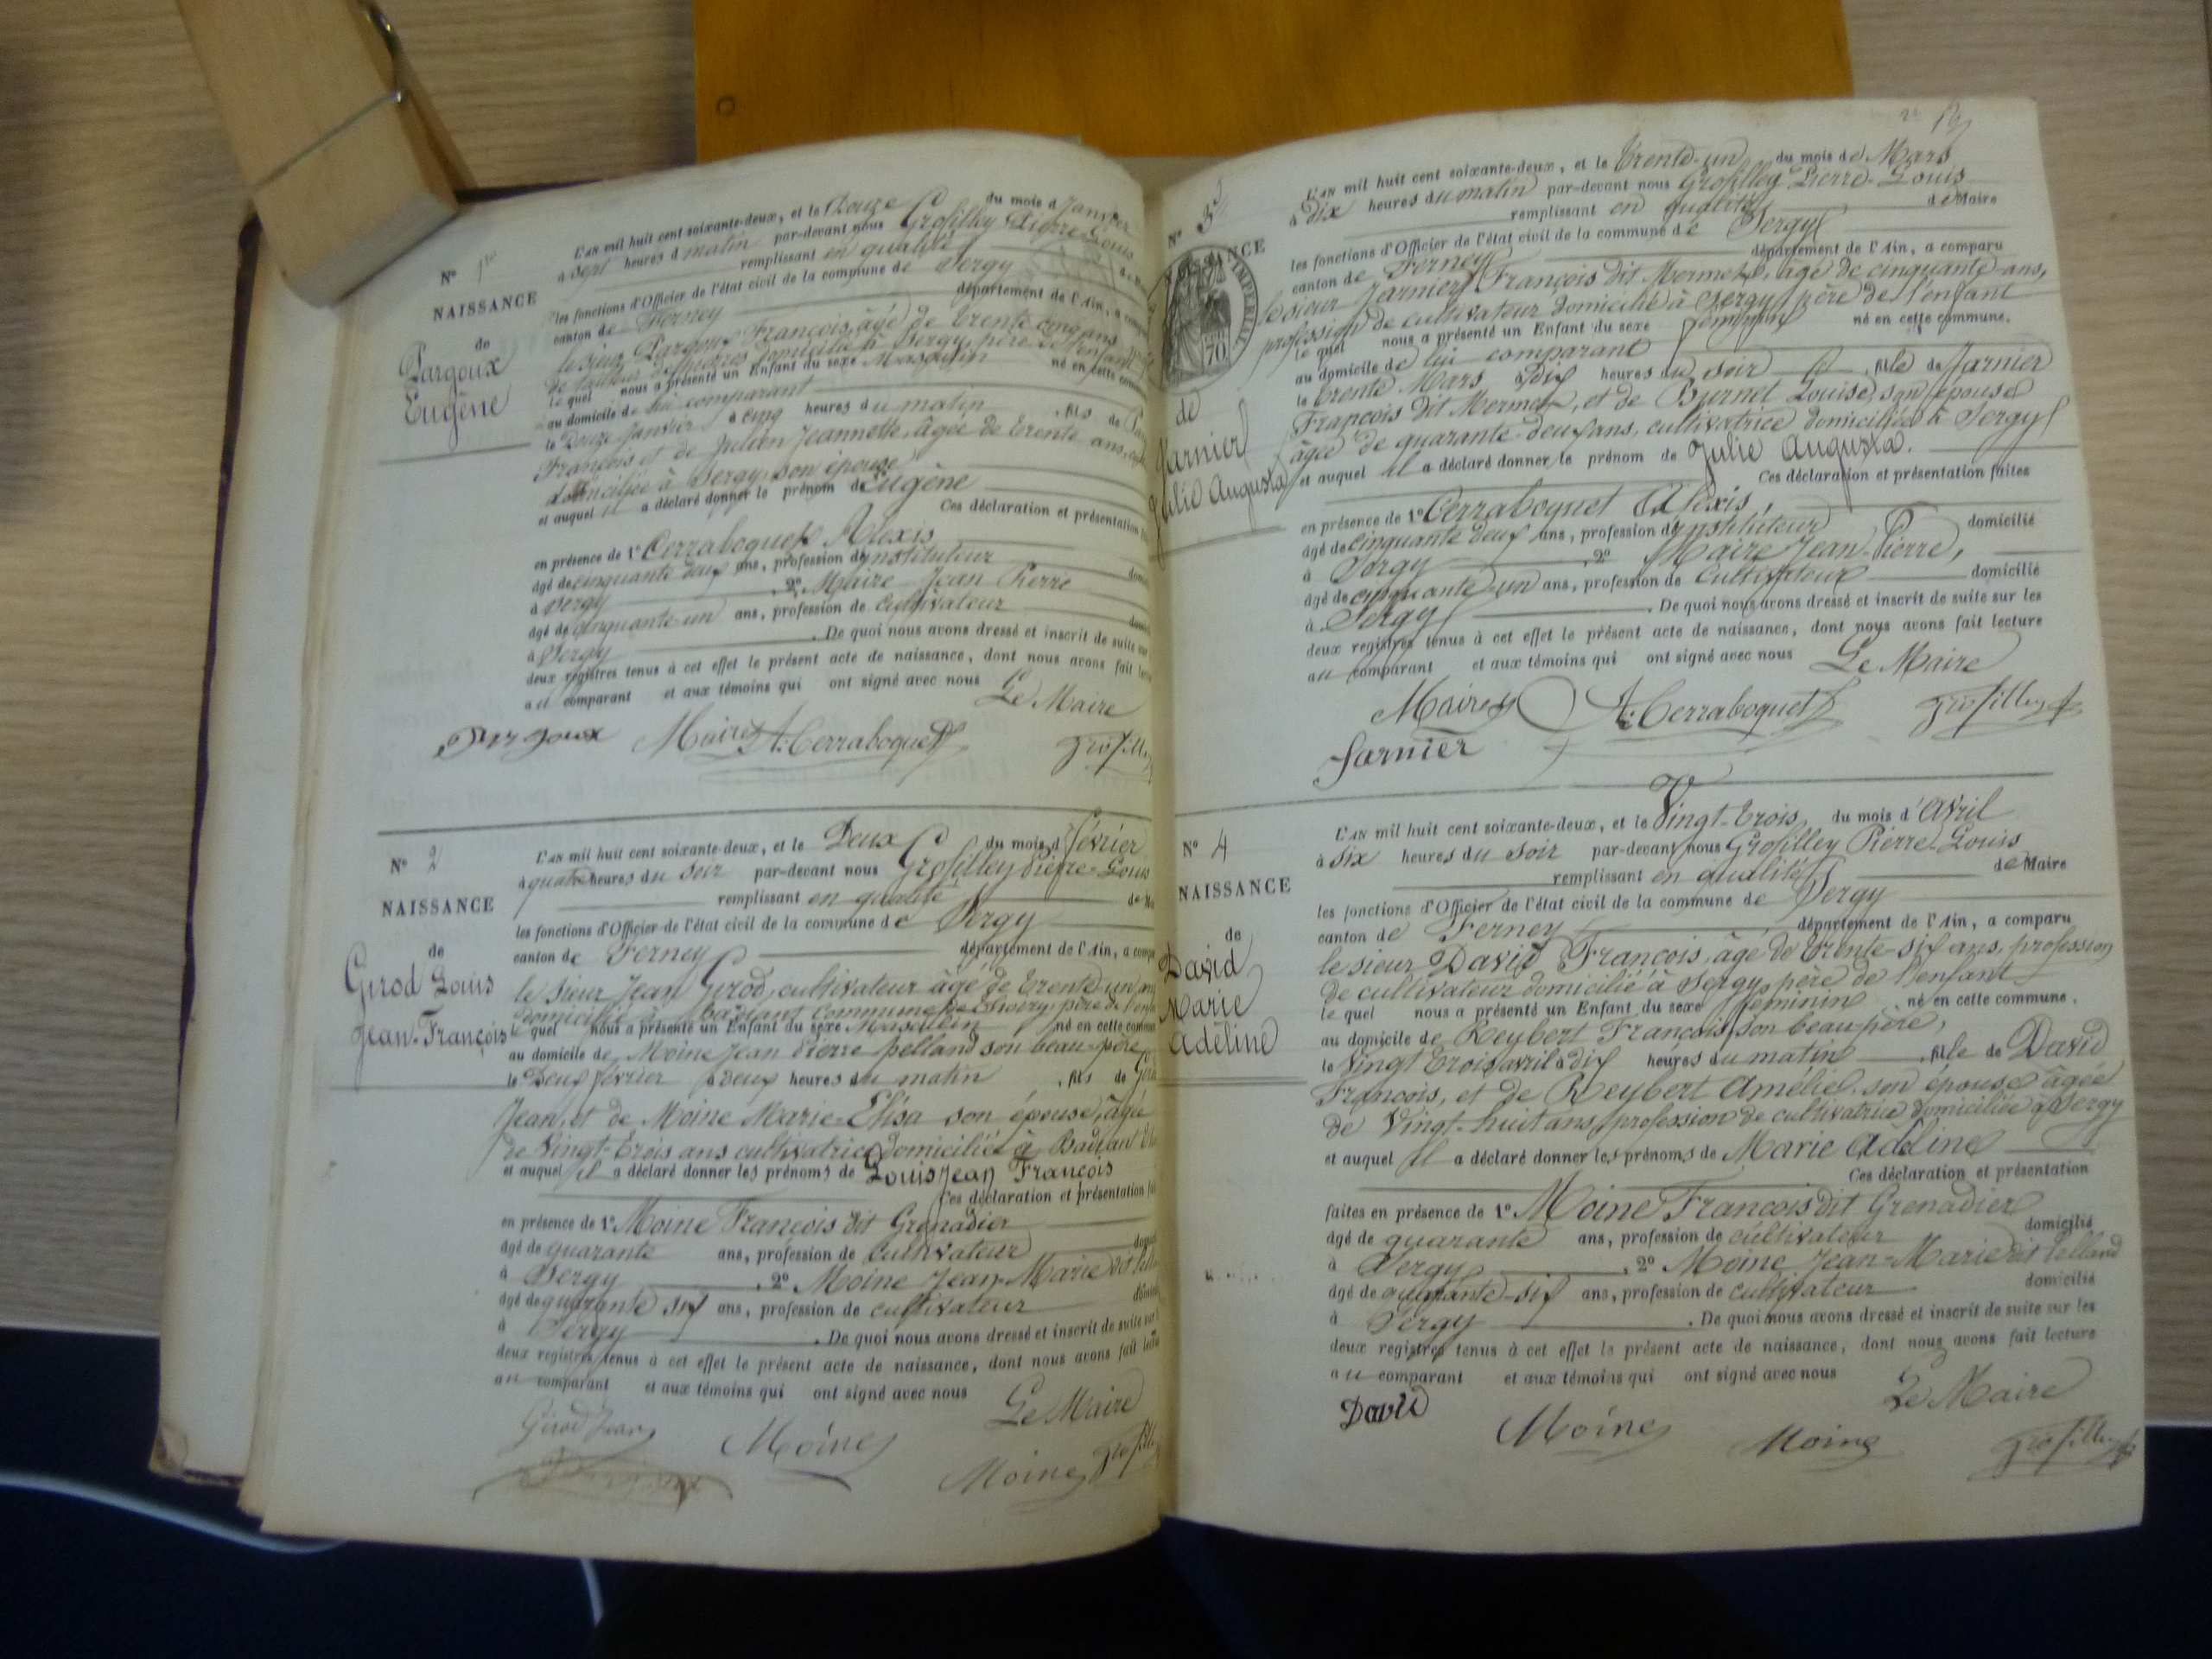 N° 1er
NAISSANCE
de
Pargoux
Eugène
L'AN mil huit cent soixante-deux, et le Douze du mois d Janvier
à sept heures d matin par-devant nous Grosfilley Pierre Louis
remplissant en qualité de
les fonctions d'Officier de l'état civil de la commune de Sergy
canton de Ferney département de l'Ain, a
le sieur Pargoux François, âgé de trente cinq ans
de domicilié à Sergy, père de l'enfant
le quel nous a présenté un Enfant du sexe Masculin né en cette
au domicile de lui comparant
le Douze Janvier à cinq heures du matin , fils de
François et de Julien Jeannette, âgée de trente ans,
domiciliée à Sergy, son épouse
et auquel il a déclaré donner le prénom de Eugène
Ces déclaration et présentation
en présence de 1° Cerraboquet Alexis
âgé de cinquante deux ans, profession d'instituteur
à Sergy , 2° Maire Jean Pierre
âgé de cinquante-un ans, profession de cultivateur
à Sergy . De quoi nous avons dressé et inscrit de suite sur
deux registres tenus à cet effet le présent acte de naissance, dont nous avons fait
au comparant et aux témoins qui ont signé avec nous
Le Maire
Pargoux Maire A. Cerraboquet
N° 2
NAISSANCE
de
Girod Louis
Jean-François
L'AN mil huit cent soixante-deux, et le Deux du mois d février
à quatre heures du soir par-devant nous Grosfilley Pierre-Louis
remplissant en qualité de
les fonctions d'Officier de l'état civil de la commune de Sergy
canton de Ferney département de l'Ain, a
le sieur Jean Girod, cultivateur âgé de trente-un ans
domicilié à commune de Thoiry, père de
le quel nous a présenté un Enfant du sexe Masculin né en cette
au domicile de Moine Jean Pierre pelland son beau-père
le Deux février à Deux heures du matin , fils de
Jean, et de Moine Marie-Elisa son épouse, âgée
de Vingt-trois ans cultivatrice domiciliée à
et auquel il a déclaré donner les prénoms de Louis Jean François
Ces déclaration et présentation
en présence de 1° Moine François dit Grenadier
âgé de quarante ans, profession de cultivateur
à Sergy , 2° Moine Jean-Marie dit
âgé de quarante six ans, profession de cultivateur
à Sergy . De quoi nous avons dressé et inscrit de suite sur
deux registres tenus à cet effet le présent acte de naissance, dont nous avons fait
au comparant et aux témoins qui ont signé avec nous
Le Maire
Girod Jean Moine
Moine
N° 3
NAISSANCE
IMPERIALE
70
de
Jarnier
Julie Augusta
L'AN mil huit cent soixante-deux, et le trente-un du mois de Mars
à dix heures du matin par-devant nous Grosfilley Pierre-Louis
remplissant en qualité de Maire
les fonctions d'Officier de l'état civil de la commune de Sergy
canton de Ferney département de l'Ain, a comparu
le sieur Jarnier François dit Mermet, âgé de cinquante ans,
profession de cultivateur domicilié à Sergy, père de l'enfant
le quel nous a présenté un Enfant du sexe féminin né en cette commune.
au domicile de lui comparant
le trente Mars à dix heures du soir , fille de Jarnier
François dit Mermet, et de Burnet Louise, son épouse
âgée de quarante-deux ans, cultivatrice domiciliée à Sergy
et auquel il a déclaré donner le prénom de Julie Augusta.
Ces déclaration et présentation faites
en présence de 1° Cerraboquet Alexis,
âgé de cinquante deux ans, profession d'instituteur domicilié
à Sergy , 2° Maire Jean-Pierre,
âgé de cinquante-un ans, profession de cultivateur domicilié
à Sergy . De quoi nous avons dressé et inscrit de suite sur les
deux registres tenus à cet effet le présent acte de naissance, dont nous avons fait lecture
au comparant et aux témoins qui ont signé avec nous Le Maire
Maire A. Cerraboquet Grosfilley
Jarnier
N° 4
NAISSANCE
de
David
Marie
Adeline
L'AN mil huit cent soixante-deux, et le Vingt-trois du mois d'avril
à six heures du soir par-devant nous Grosfilley Pierre Louis
remplissant en qualité de Maire
les fonctions d'Officier de l'état civil de la commune de Sergy
canton de Ferney département de l'Ain, a comparu
le sieur David François, âgé de trente-six ans, profession
de cultivateur domicilié à Sergy, père de l'enfant
le quel nous a présenté un Enfant du sexe féminin né en cette commune.
au domicile de Reybert François, son beau père,
le Vingt trois avril à dix heures du matin , fille de David
François, et de Reybert Amélie, son épouse âgée
de Vingt-huit ans, profession de cultivatrice domiciliée à Sergy
et auquel il a déclaré donner les prénoms de Marie Adeline
Ces déclaration et présentation
faites en présence de 1° Moine François dit Grenadier
âgé de quarante ans, profession de cultivateur domicilié
à Sergy , 2° Moine Jean-Marie dit Pelland
âgé de quarante-six ans, profession de cultivateur domicilié
à Sergy . De quoi nous avons dressé et inscrit de suite sur les
deux registres tenus à cet effet le présent acte de naissance, dont nous avons fait lecture
au comparant et aux témoins qui ont signé avec nous
Le Maire
David Moine Moine Grosfilley